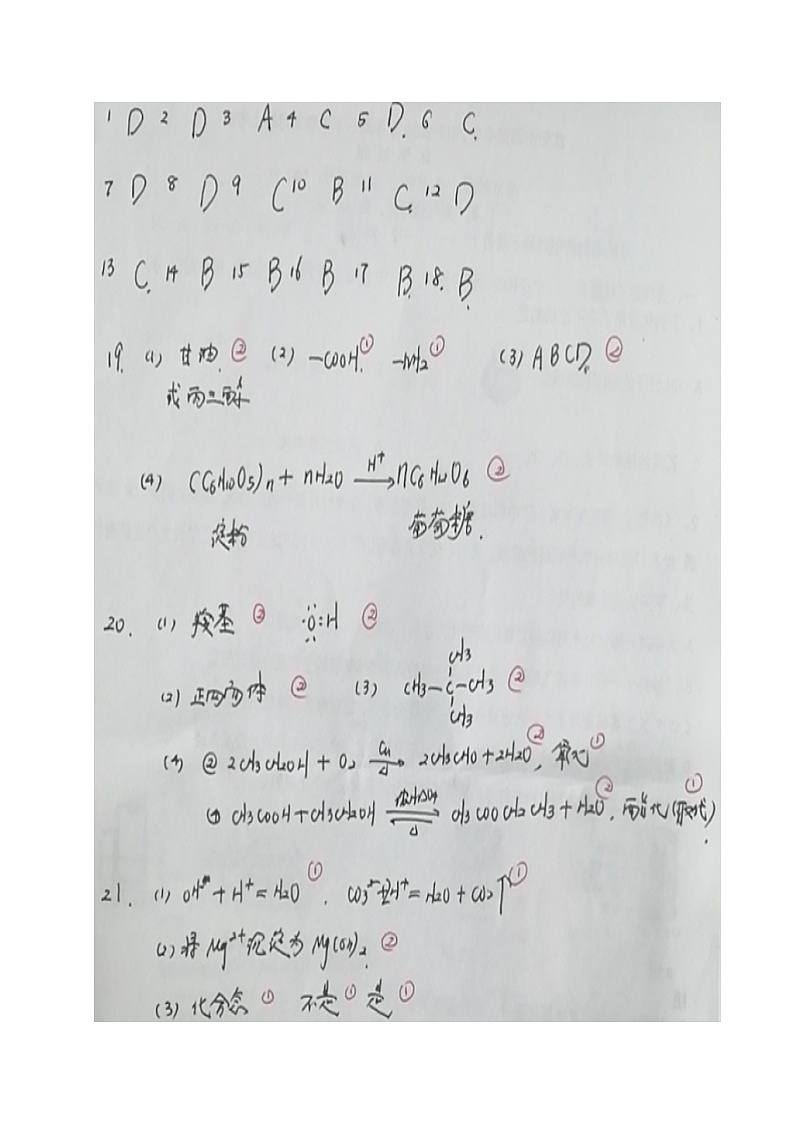 1 D 2 D 3 A 4 C 5 D. 6 C.
7 D 8 D 9 C 10 B 11 C. 12 D
13 C. 14 B 15 B 16 B 17 B. 18. B.
19. (1) 甘油. ② (2) —COOH. ① —NH2 ① (3) ABCD. ②
或丙三醇
(4) (C6H10O5)n + nH2O —H+→ nC6H12O6 ②
淀粉 葡萄糖.
20. (1) 羧基 ② ·Ö:H ②
CH3
(2) 正四面体 ② (3) CH3—C—CH3 ②
CH3
(4) ② 2CH3CH2OH + O2 —Cu/△→ 2CH3CHO + 2H2O ②, 氧化 ①
CH3COOH + CH3CH2OH ⇌ 浓H2SO4/△ CH3COOCH2CH3 + H2O ②. 酯化(取代) ①.
21. (1) OH⁻ + H⁺ = H2O ①. CO3²⁻ + 2H⁺ = H2O + CO2↑ ①
(2) 将Mg²⁺沉淀为Mg(OH)2. ②
(3) 化合态 ① 不是 ① 是 ①